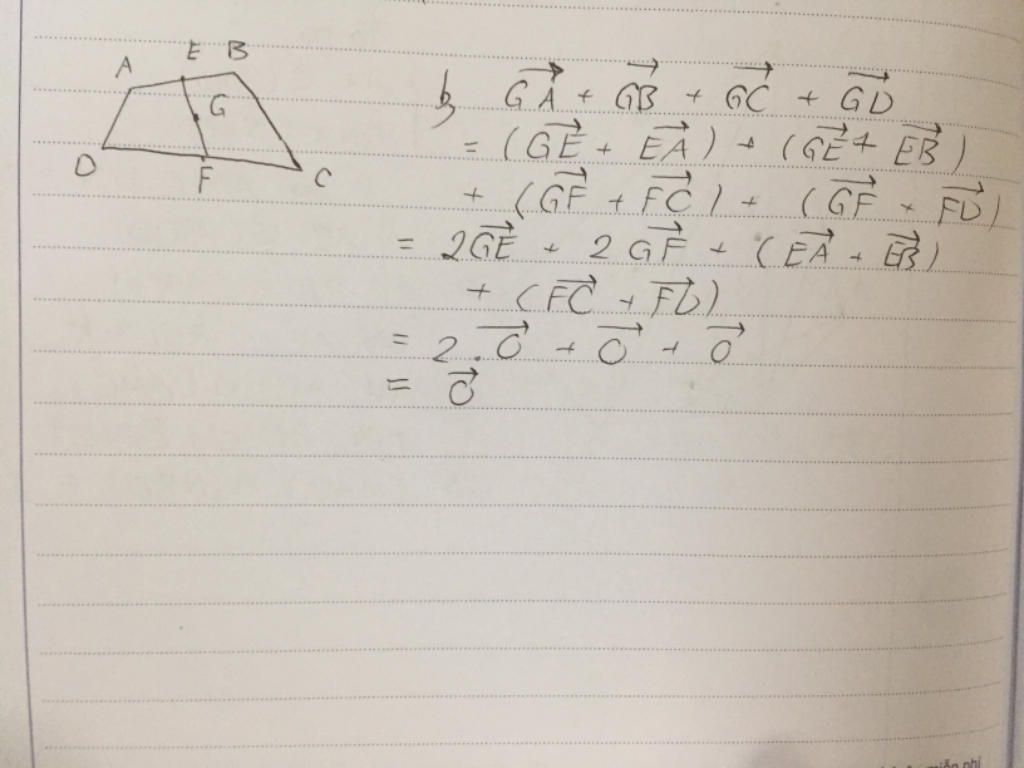 A E B
G
D F C
b) $\overrightarrow{GA} + \overrightarrow{GB} + \overrightarrow{GC} + \overrightarrow{GD}$
$= (\overrightarrow{GE} + \overrightarrow{EA}) + (\overrightarrow{GE} + \overrightarrow{EB})$
$+ (\overrightarrow{GF} + \overrightarrow{FC}) + (\overrightarrow{GF} + \overrightarrow{FD})$
$= 2\overrightarrow{GE} + 2\overrightarrow{GF} + (\overrightarrow{EA} + \overrightarrow{EB})$
$+ (\overrightarrow{FC} + \overrightarrow{FD})$
$= 2.\overrightarrow{O} + \overrightarrow{O} + \overrightarrow{O}$
$= \overrightarrow{O}$
miễn phí